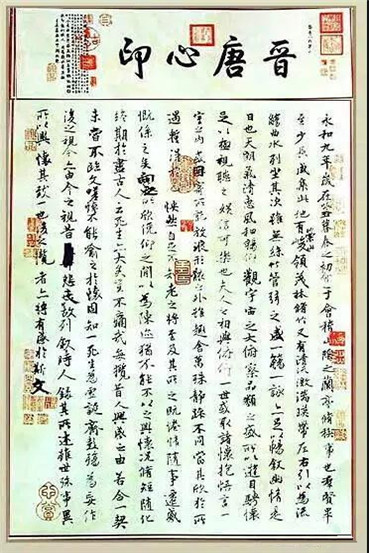 晉唐心印
永和九年歲在癸丑暮春之初會于會稽山陰之蘭亭脩禊事也羣賢畢
至少長咸集此地有崇山峻領茂林脩竹又有清流激湍映帶左右引以為流
觴曲水列坐其次雖無絲竹管弦之盛一觴一詠亦足以暢叙幽情是
日也天朗氣清惠風和暢仰觀宇宙之大俯察品類之盛所以遊目騁懷
足以極視聽之娛信可樂也夫人之相與俯仰一世或取諸懷抱悟言一
室之內或因寄所託放浪形骸之外雖趣舍萬殊靜躁不同當其欣於所
遇暫得於己快然自足不知老之將至及其所之既惓情隨事遷感
慨係之矣向之所欣俛仰之間以為陳迹猶不能不以之興懷況脩短隨化
終期於盡古人云死生亦大矣豈不痛哉每攬昔人興感之由若合一契
未嘗不臨文嗟悼不能喻之於懷固知一死生為虛誕齊彭殤為妄作
後之視今亦由今之視昔悲夫故列叙時人錄其所述雖世殊事異
所以興懷其致一也後之攬者亦將有感於斯文